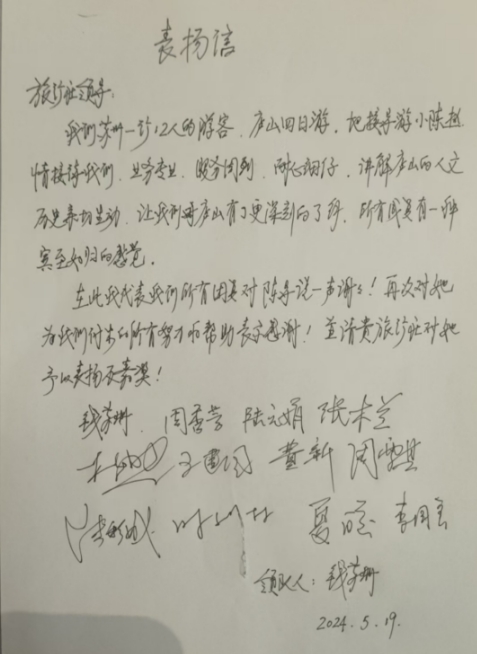 表扬信
旅行社领导：
我们苏州一行12人的游客，庐山四日游，地接导游小陈热
情接待我们，业务专业，服务周到，耐心细仔，讲解庐山的人文
历史亲切生动，让我们对庐山有了更深刻的了解，所有团员有一种
宾至如归的感觉。
在此我代表我们所有团员对陈导说一声谢谢！再次对她
为我们付出的所有努力和帮助表示感谢！并请贵旅行社对她
予以表扬及嘉奖！
钱苏珊 周秀芳 陆元娟 张木兰
王 黄新 周
夏 李国
领队人：钱苏珊
2024.5.19.